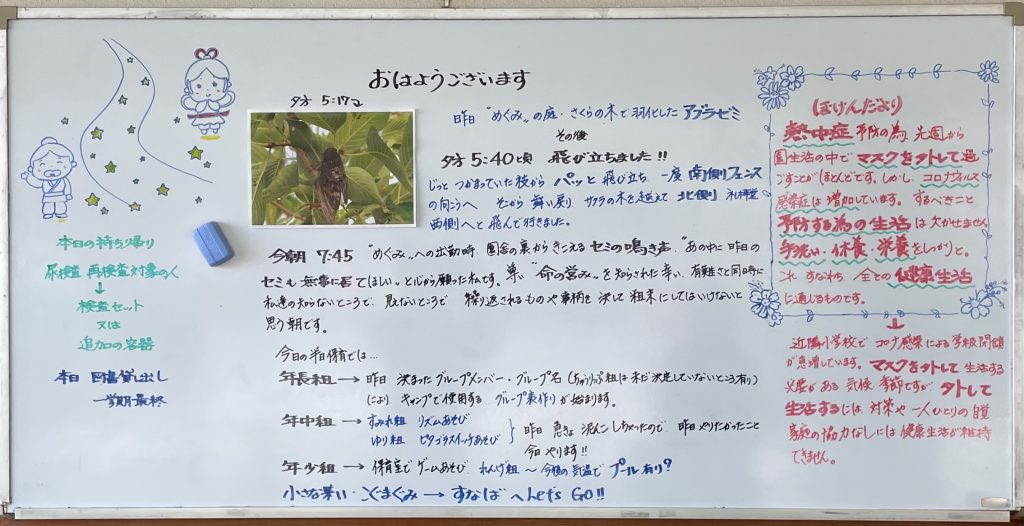 おはようございます
夕方 5:17で
昨日 "めぐみ"の庭・さくらの木で羽化したアブラゼミ
その後
夕方 5:40頃 飛び立ちました!!
じっと つかまっていた枝から パッと 飛び立ち 一度 南側フェンス
の向こうへ そこから 舞い戻り サクラの木を越えて 北側 礼拝堂
西側へと 飛んで行きました。
今朝 7:45 "めぐみ"への出勤時、園舎の裏からきこえる セミの鳴き声。"あの中に 昨日の
セミも 無事に居てほしい"と心から願った私です。尊い "命の営み"を知らされた幸い、有難さと同時に
私達の知らないところで、見えないところで 繰り返されるものや事柄を 決して 粗末にしてはいけないと
思う朝です。
今日の半日保育では…
年長組 → 昨日 決まった グループメンバー・グループ名(ちゅうりっぷ組は未だ決定していないところ有り)
により キャンプで使用する グループ表作りが始まります。
年中組 → すみれ組 リズムあそび
ゆり組 ピタゴラスイッチあそび
昨日 急きょ 泥んこしちゃったので 昨日やりたかったこと
今日やります!!
年少組 → 保育室で ゲームあそび れんげ組 〜 今後の気温で プール有り?
小さな集い・こぐまぐみ → すなば へ Let's GO!!
本日の持ち帰り
尿検査 再検査対象の人
↓
検査セット
又は
追加の容器
本日 図書貸し出し
一学期最終
(ほけんだより)
熱中症 予防の為、先週から
園生活の中で マスクを外して過
ごすことがほとんどです。しかし、コロナウイルス
感染症は 増加しています。するべきこと
予防する為の生活 は欠かせません
手洗い・休養・栄養をしっかりと。
これ すなわち 全ての 健康生活
に通じるものです。
↓
近隣小学校で コロナ感染による学級閉鎖
が急増しています。マスクを外して 生活する
必要がある 気候 季節ですが 外して
生活するには、対策や 一人ひとりの自覚
家庭の協力なしには 健康生活が維持
できません。